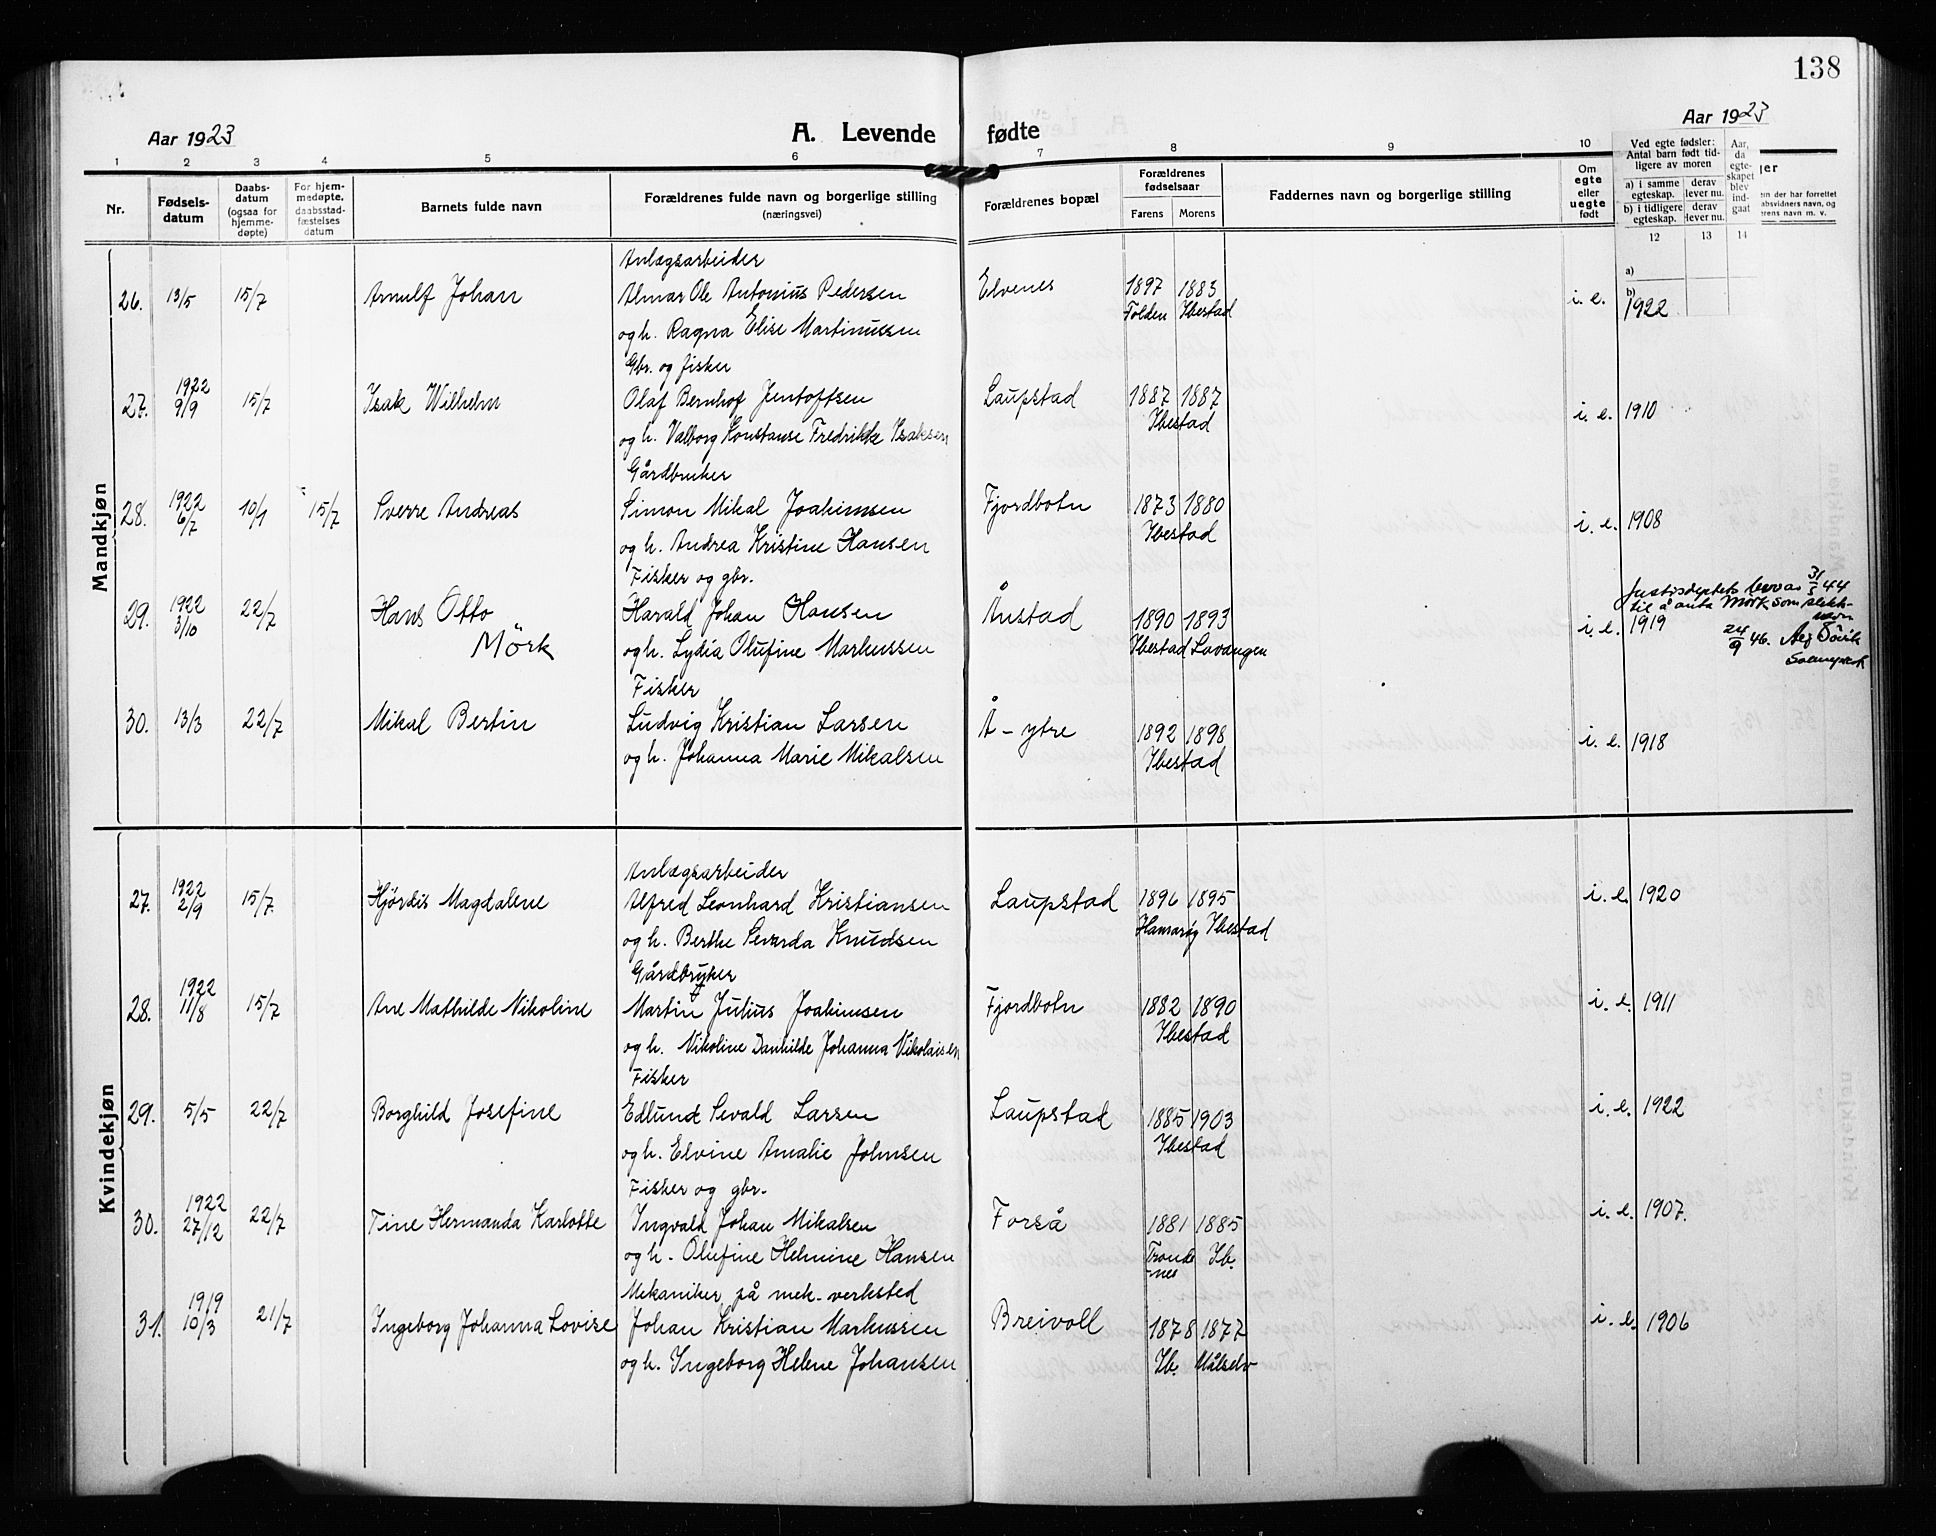 138
Aar 1923
A. Levende fødte
Aar 1923
1 2 3 4 5 6 7 8 9 10
Nr.
Fødsels-
datum
Daabs-
datum
(ogsaa for
hjemme-
døpte)
For hjem-
medøpte,
daabsstad-
fæstelses
datum
Barnets fulde navn
Forældrenes fulde navn og borgerlige stilling
(næringsvei)
Forældrenes bopæl
Forældrenes
fødselsaar
Farens Morens
Faddernes navn og borgerlige stilling
Om
egte
eller
uegte
født
Ved egte fødsler:
Antal barn født tid-
ligere av moren
a) i samme
egteskap.
derav
lever nu.
b) i tidligere
egteskap.
derav
lever nu.
Aar,
da
egte-
skapet
blev
ind-
gaat
12 13 14
a)
b)
Mandkjøn
Anlægsarbeider
26. 13/5 15/7 Arnulf Johan Almar Ole Antonius Pedersen Elvenes 1897 1883 i. e. 1922
Folden Ibestad
og h. Ragna Elise Martinussen
Gbr. og fisker
27. 1922 9/9 15/7 Isak Wilhelm Olaf Bernhof Jentoftsen Laupstad 1887 1887 i. e. 1910
Ibestad
og h. Valborg Konstanse Fredrikke Isaksen
Gårdbruker
28. 1922 6/7 10/1 15/7 Sverre Andreas Simon Mikal Joakimsen Fjordbotn 1873 1880 i. e. 1908
Ibestad
og h. Andrea Kristine Hansen
Fisker og gbr.
29. 1922 3/10 22/7 Hans Otto Harald Johan Hansen Ånstad 1890 1893 i. e. 1919
Mörk
Ibestad Lavangen
og h. Lydia Olufine Markussen
31/5 44
til å anta Mörk som slekts-
navn
24/9 46.
Fisker
30. 13/3 22/7 Mikal Bertin Ludvig Kristian Larsen Å - ytre 1892 1898 i. e. 1918
Ibestad
og h. Johanna Marie Mikalsen
Kvindekjøn
Anlægsarbeider
27. 1922 2/9 15/7. Hjørdis Magdalene Alfred Leonhard Kristiansen Laupstad 1896 1895 i. e. 1920
Hamarøy Ibestad
og h. Berthe Sevarda Knudsen
Gårdbruker
28. 1922 11/8 15/7 Ane Mathilde Nikoline Martin Julius Joakimsen Fjordbotn 1882 1890 i. e. 1911
Ibestad
og h. Nikoline Danhilde Johanna Nikolaisen
Fisker
29. 5/5 22/7 Borghild Josefine Edlund Sevald Larsen Laupstad 1885 1903 i. e. 1922
Ibestad
og h. Elvine Amalie Johnsen
Fisker og gbr.
30. 1922 27/12 22/7 Tine Hermanda Karlotte Ingvald Johan Mikalsen Forså 1881 1885 i. e. 1907.
Tronde-
nes Ib.
og h. Olufine Helmine Hansen
Mekaniker på mek. verksted
31. 1919 10/3 21/7 Ingeborg Johanna Lovise Johan Kristian Markussen Breivoll 1878 1877 i. e. 1906
Ib. Målselv
og h. Ingeborg Helene Johansen